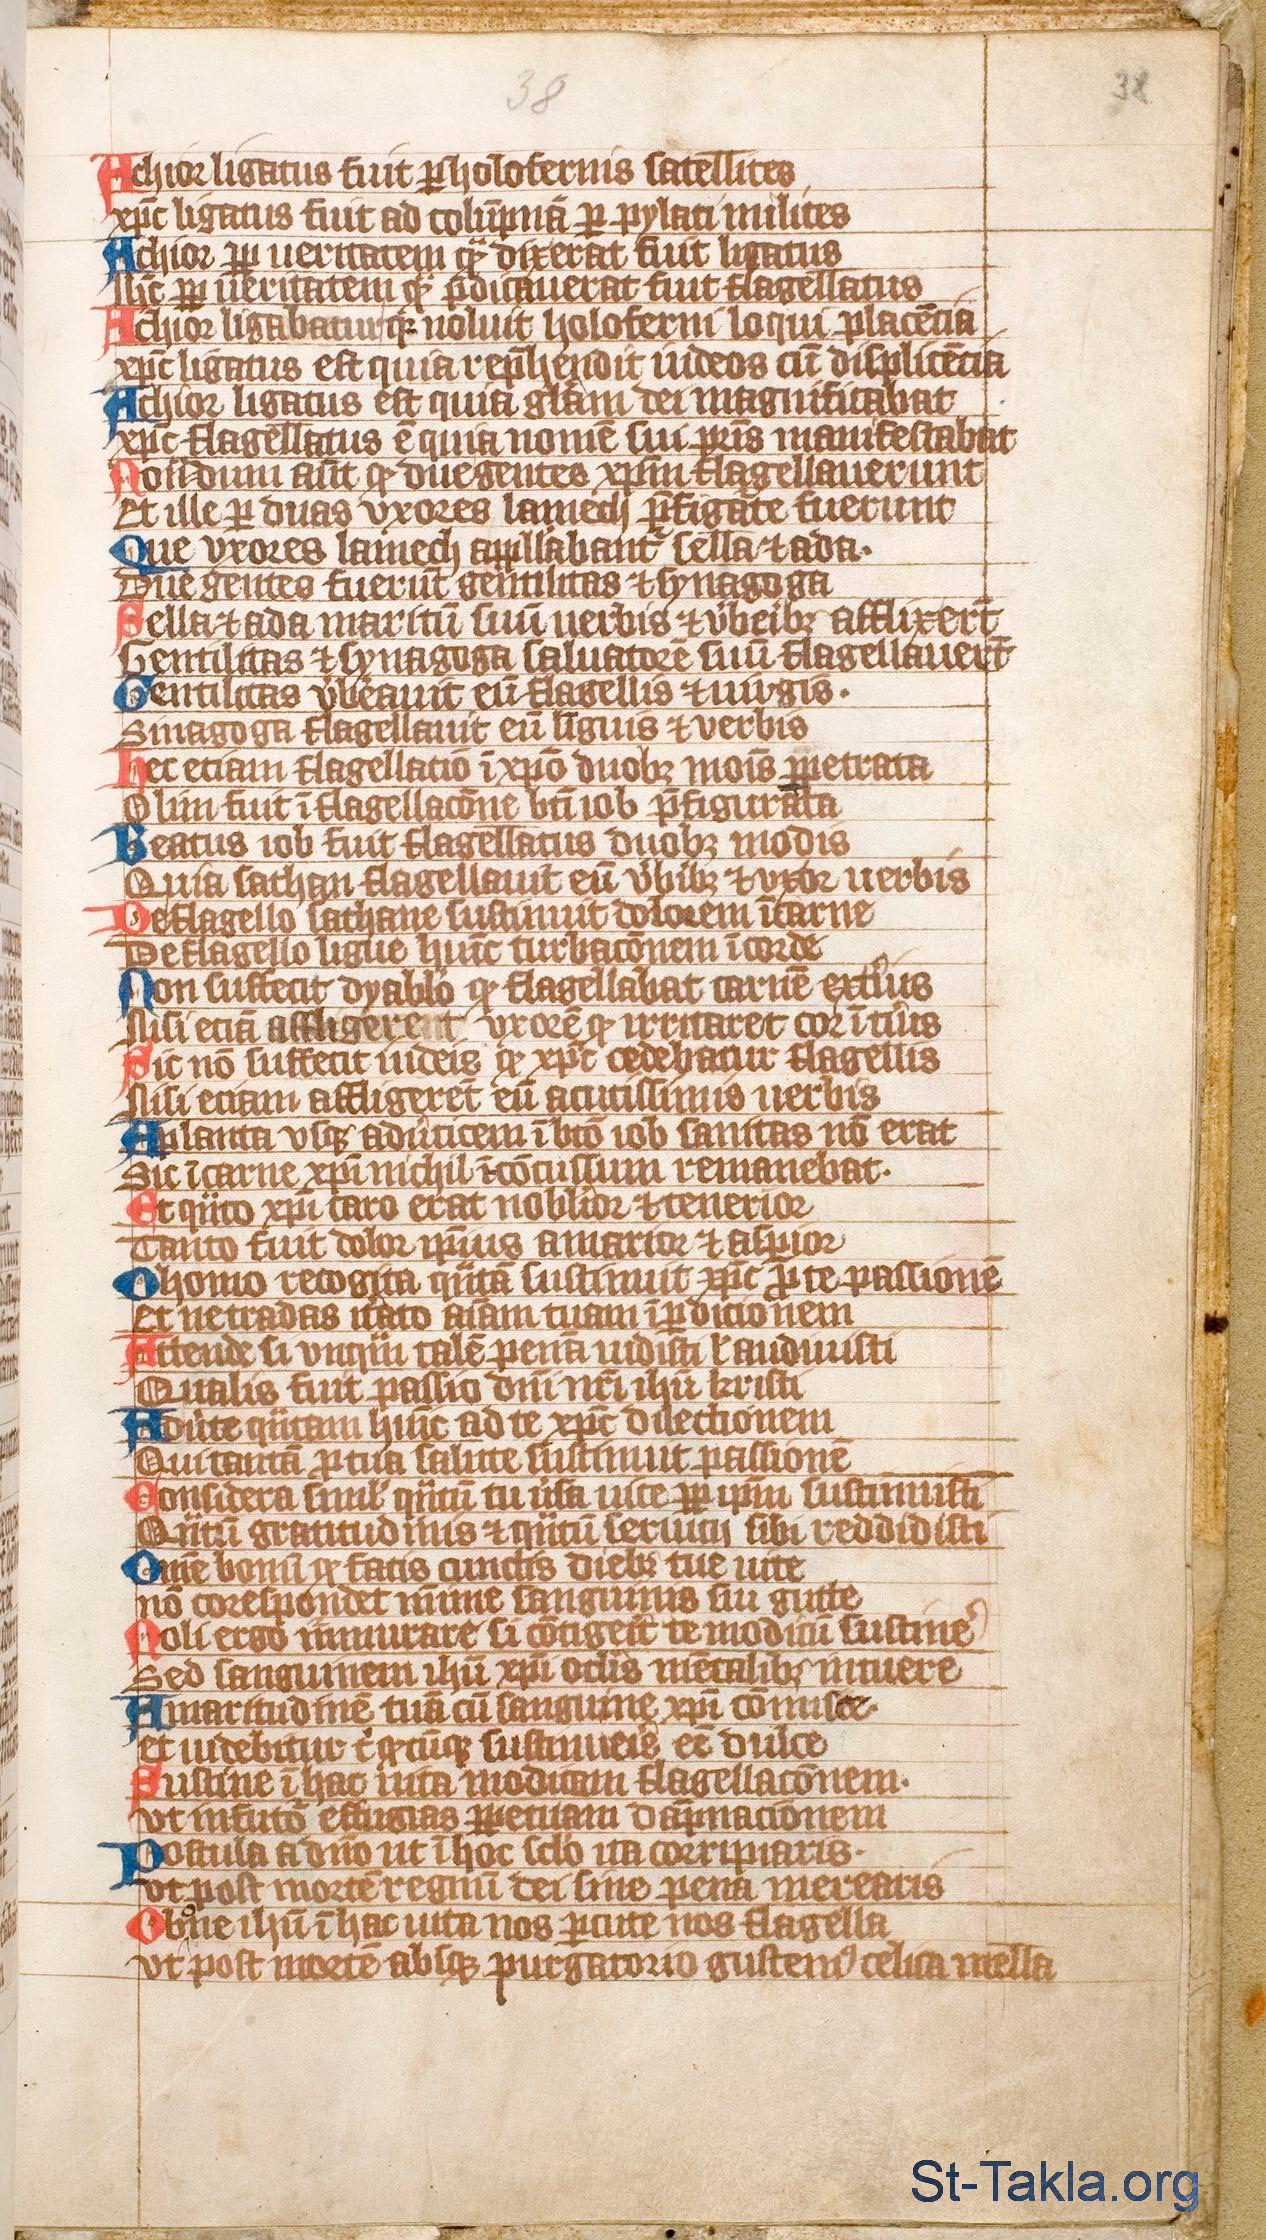 38
38
Achior ligatus fuit ꝑ holofernis satellites
xp̄c ligatus fuit ad colūpnā ꝑ pylati milites
Achior ꝓpter ueritatem quam dixerat fuit ligatus
Sic ꝓpter ueritatem quam p̄dicauerat fuit flagellatus
Achior ligabatur quia noluit holoferni loqui placēcia
xp̄c ligatus est quia rep̄hendit iudeos cū displicēcia
Achior ligatus est quia gl̄am dei magnificabat
xp̄c flagellatus ē quia nomē sui pr̄is manifestabat
Notandum aūt ꝙ due gentes xpm̄ flagellauerunt
Et ille ꝑ duas vxores lamech p̄figate fuerunt
Que vxores lamech appellabant᷑ sella ⁊ ada.
Due gentes fuerūt gentilitas ⁊ synagoga
Sella ⁊ ada maritū suū uerbis ⁊ v̓beribꝫ afflixerūt
Gentilitas ⁊ synagoga saluatorē suū flagellauerūt
Gentilitas v̓berauit eū flagellis ⁊ uirgis.
Sinagoga flagellauit eū līguis ⁊ verbis
Hec etiam flagellatio ī xp̄o duobꝫ modis ꝑpetrata
Olim fuit ī flagellacōne bt̄i iob p̄figurata
Beatus iob fuit flagellatus duobꝫ modis
Quia sathan flagellauit eū v̓bibꝫ ⁊ vxor uerbis
De flagello sathane sustinuit dolorem ī carne
De flagello ligue huīc turbacōnem ī corde
Non suffecit dyabolo ꝙ flagellabat carnē exteri᷒
Nisi eciā affligerent vxorē ꝙ irritaret cor īteri᷒
Sic nō suffecit iudeis ꝙ xp̄c cedebatur flagellis
Nisi eciam affligerēt eū acutissimis uerbis
A planta vsqꝫ ad uīticem ī bt̄o iob sanitas nō erat
Sic ī carne xp̄i nichil īcōcussum remanebat.
Et qūto xp̄i caro erat nobilior ⁊ tenerior
Tanto fuit dolor ip̄ius amarior ⁊ asp̄ior
O homo recogita qūtā sustinuit xp̄c ꝓ te passionē
Et ne tradas iterato aīam tuam ī ꝑditionem
Attende si vnqūm talē penā uidisti l̓ audiuisti
Qualis fuit passio dn̄i nr̄i ihū kristi
Aduerte qūtam huīt ad te xp̄c dilectionem
Qui tantā ꝓ tua salute sustinuit passionē
Considera simul qūtū tu ip̄a uite ꝓpter ip̄m sustinuisti
Qūtū gratitudinis ⁊ qūtū seruicij sibi reddidisti
Omē bonū ꝙ facis cunctis diebꝫ tue uite
nō corespondet minime sanguinis sui gutte
Noli ergo murmurare si cōtigerit te modicū sustinē
Sed sanguinem ihū xp̄i oclis mētalibꝫ intuere
Amaritudinē tuā cū sanguine xp̄i cōmisce.
et uidebitur t̓ qͣcūqꝫ sustinueris eē dulce
Sustine ī hac uita modicam flagellacōnem.
vt in futuō effugias ꝑpetuam dāpnacionem
Postula a dn̄o ut ī hoc sclo ita corripiaris.
vt post mortē regnū dei sine pena merearis
O bone ihū ī hac uita nos ꝑcute nos flagella
vt post mortē absqꝫ purgatorio gustem᷒ celica mella
St-Takla.org